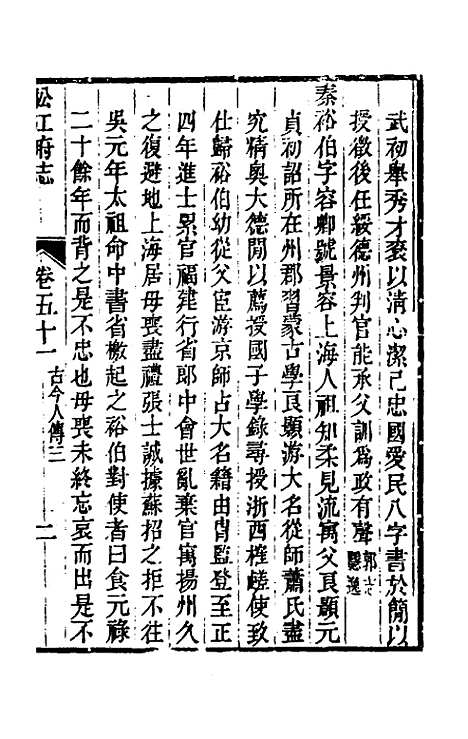 武初舉秀才袤以清心潔己忠國愛民八字書於簡以
授徵後任綏德州判官能承父訓爲政有聲郭志隱逸
秦裕伯字容卿號景容上海人祖知柔見流寓父良顥元
貞初詔所在州郡習蒙古學良顥游大名從師蕭氏盡
究精奥大德閒以薦授國子學錄尋授浙西榷鹺使致
仕歸裕伯幼從父宦游京師占大名籍由胄監登至正
四年進士累官福建行省郎中會世亂棄官寓揚州久
之復避地上海居母喪盡禮張士誠據蘇招之拒不往
吳元年太祖命中書省檄起之裕伯對使者曰食元祿
二十餘年而背之是不忠也母喪未終忘哀而出是不
松江府志
卷五十一
古今人傳三
二